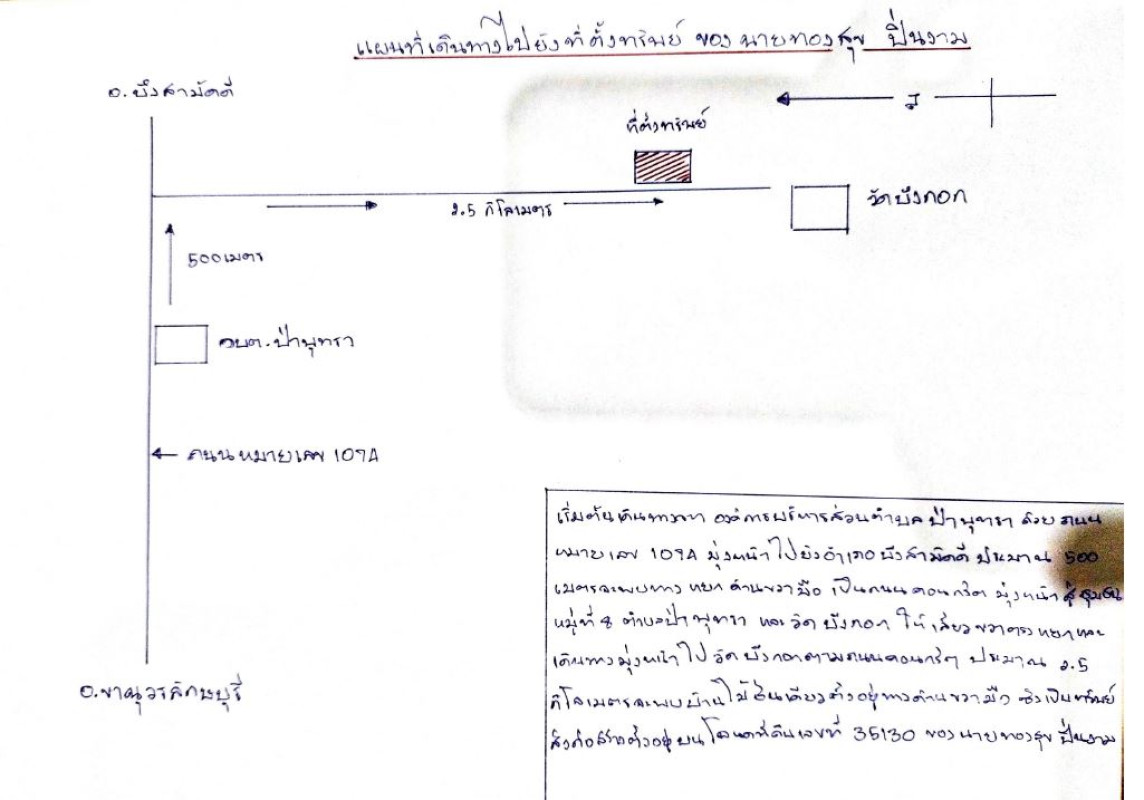 แผนที่เดินทางไปยังที่ตั้งทรัพย์ ของ นายทองสุข ปิ่นงาม
อ. บึงสามัคคี
น
ที่ตั้งทรัพย์
วัดบึงกอก
2.5 กิโลเมตร
500 เมตร
อบต. ป่าพุทรา
ถนน หมายเลข 1074
อ. ขาณุวรลักษบุรี
เริ่มต้นเดินทางจาก องค์การบริหารส่วนตำบล ป่าพุทรา ด้วย ถนน
หมายเลข 1074 มุ่งหน้า ไปยังอำเภอ บึงสามัคคี ประมาณ 500
เมตรจะพบทาง แยก ด้านขวามือ เป็นถนน คอนกรีต มุ่งหน้า สู่ ชุมชน
หมู่ที่ 8 ตำบลป่าพุทรา และ วัด บึงกอก ให้ เลี้ยวขวาตรง แยกและ
เดินทาง มุ่งหน้า ไป วัด บึงกอกตามถนนคอนกรีต ประมาณ 2.5
กิโลเมตรจะพบ บ้านไม้ ชั้นเดียวตั้งอยู่ทางด้านขวามือ ซึ่งเป็นทรัพย์
สิ่งก่อสร้างตั้งอยู่บน โฉนดที่ดินเลขที่ 35130 ของ นายทองสุข ปิ่นงาม